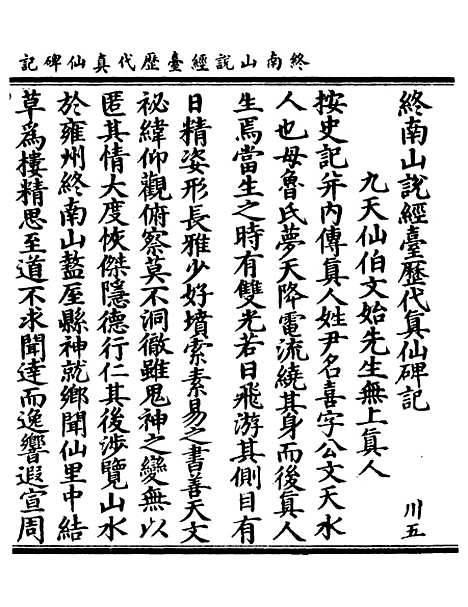 終南山説經臺歷代真仙碑記
終南山説經臺歷代眞仙碑記
川五
九天仙伯文始先生無上眞人
按史記并内傳眞人姓尹名喜字公文天水
人也母魯氏夢天降電流繞其身而後眞人
生焉當生之時有雙光若日飛游其側目有
日精姿形長雅少好墳索素易之書善天文
祕緯仰觀俯察莫不洞徹雖鬼神之變無以
匿其情大度恢傑隱德行仁其後渉覽山水
於雍州終南山盩厔縣神就鄉聞仙里中結
草爲樓精思至道不求聞達而逸響遐宣周